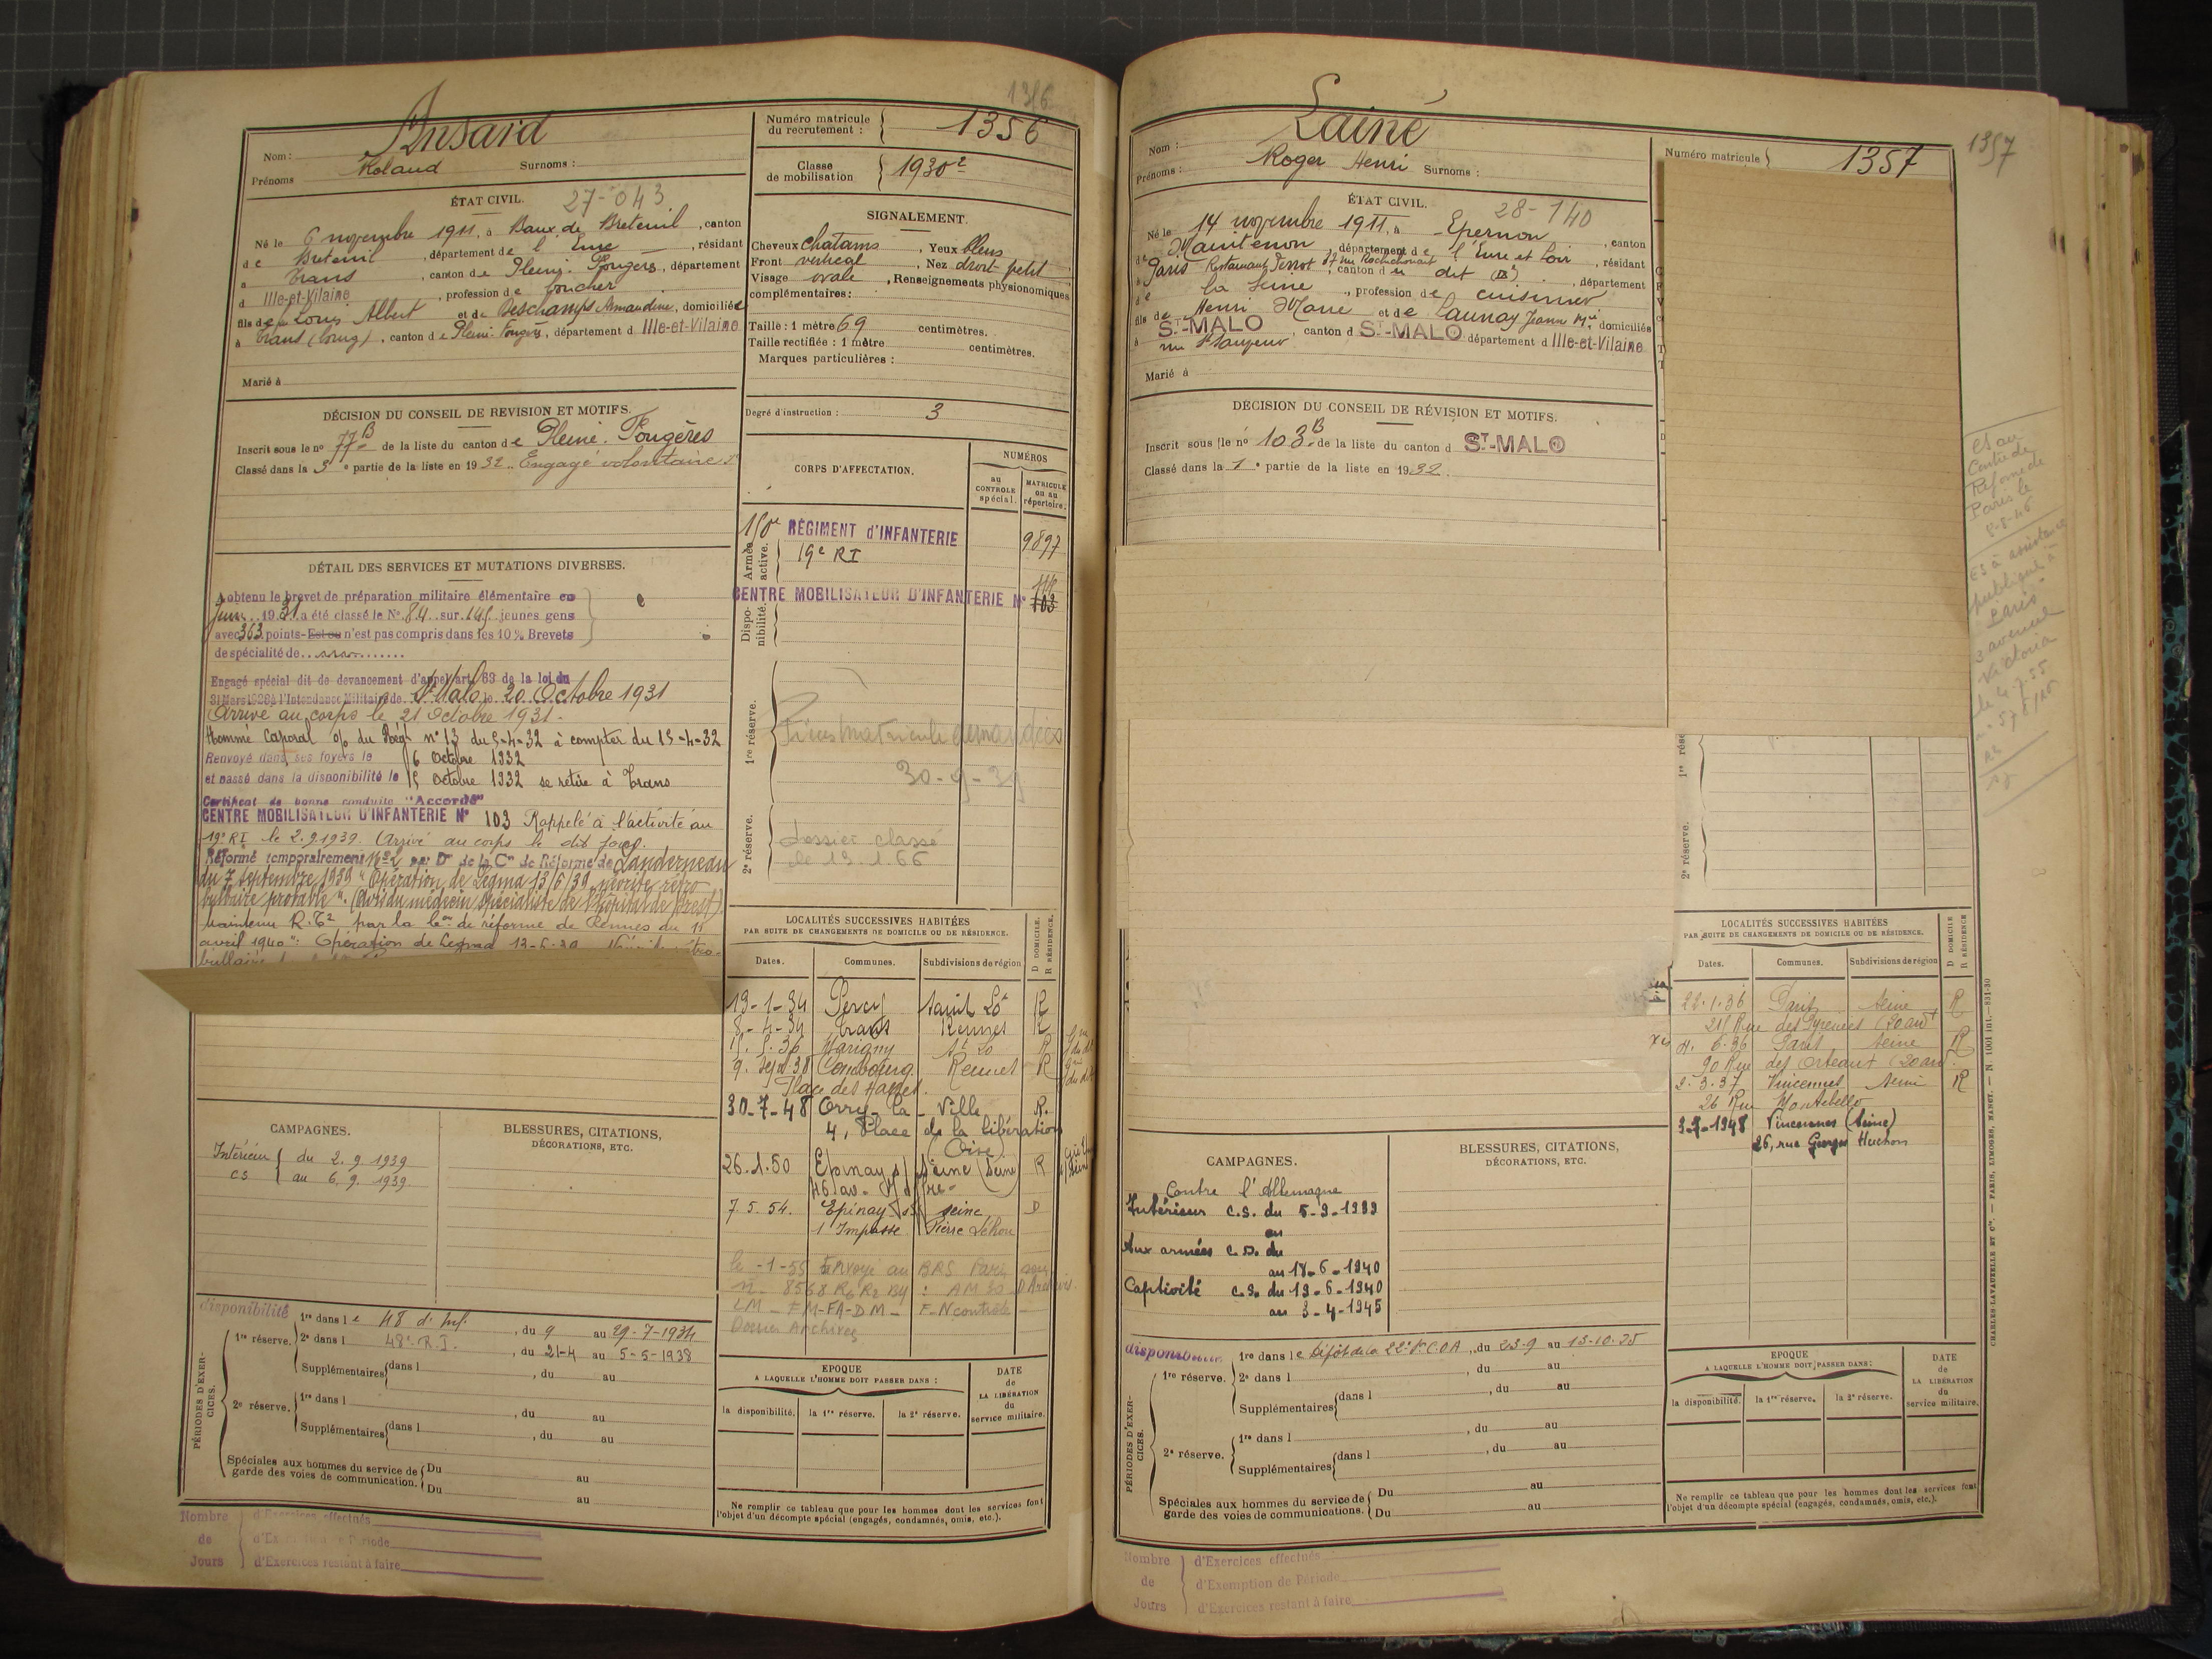 1356
Nom : Ansard
Prénoms Roland Surnoms :
Numéro matricule du recrutement : 1356
Classe de mobilisation 1930²
ÉTAT CIVIL. 27-043
Né le 6 novembre 1911, à Baux de Breteuil, canton
de Breteuil, département de l'Eure, résidant
à Trans, canton de Pleine-Fougères, département
d Ille-et-Vilaine, profession de boucher
fils de Louis Albert et de Deschamps Amandine, domiciliés
à Trans (bourg), canton de Pleine-Fougères, département d Ille-et-Vilaine
Marié à
SIGNALEMENT.
Cheveux chatains. Yeux bleus
Front vertical. Nez droit petit
Visage ovale, Renseignements physionomiques
complémentaires :
Taille : 1 mètre 69 centimètres.
Taille rectifiée : 1 mètre centimètres.
Marques particulières :
Degré d'instruction : 3
DÉCISION DU CONSEIL DE REVISION ET MOTIFS.
Inscrit sous le n° 77 B de la liste du canton de Pleine-Fougères
Classé dans la 3e partie de la liste en 1932. Engagé volontaire
CORPS D'AFFECTATION.
NUMÉROS
au CONTROLE spécial.
MATRICULE ou au répertoire.
Armée active.
RÉGIMENT d'INFANTERIE 9897
19e RI
Disponibilité.
CENTRE MOBILISATEUR D'INFANTERIE N° 103
1re réserve.
Pièces matricule demandées
30-9-39
2e réserve.
dossier classé
le 19.1.66
DÉTAIL DES SERVICES ET MUTATIONS DIVERSES.
A obtenu le brevet de préparation militaire élémentaire en
Juin 1931 a été classé le N° 84 sur 145 jeunes gens
avec 363 points - Est ou n'est pas compris dans les 10 % Brevets
de spécialité de
Engagé spécial dit de devancement d'appel art. 63 de la loi du
31 Mars 1928 à l'Intendance Militaire de St Malo le 20 Octobre 1931
Arrivé au corps le 21 Octobre 1931.
Nommé Caporal o/ du Rég. n° 13 du 5-4-32 à compter du 15-4-32
Renvoyé dans ses foyers le 6 Octobre 1932
et passé dans la disponibilité le 15 Octobre 1932 se retire à Trans
Certificat de bonne conduite "Accordé"
CENTRE MOBILISATEUR D'INFANTERIE N° 103 Rappelé à l'activité au
19e RI le 2.9.1939. Arrivé au corps le dit jour.
Réformé temporairement N°2 par Don de la Con de Réforme de Landerneau
du 7 septembre 1939 "Opération de Legma 13/6/39 névrite rétro
bulbaire probable". (Avis du médecin spécialiste de l'hôpital de Brest).
Maintenu R.T² par la Con de réforme de Rennes du 11
avril 1940 : Opération de Legma 13-6-39
LOCALITÉS SUCCESSIVES HABITÉES
PAR SUITE DE CHANGEMENTS DE DOMICILE OU DE RÉSIDENCE.
D DOMICILE. R RÉSIDENCE.
Dates. Communes. Subdivisions de région
19-1-34 Percy Saint Lô R
8-4-34 Trans Rennes R
15.5.36 Marigny St Lo R
9. Sept 38 Combourg Rennes R
Place des Halles.
30-7-48 Orry-la-Ville R.
4, Place de la libération
(Oise)
26.1.50 Epinay s/ Seine (Seine) R
7.5.54. Epinay s/ seine D
1 Impasse Pierre Léhou
le -1-55 Envoyé au BRS Paris
Dossier Archives
CAMPAGNES.
Intérieur CS du 2.9.1939
au 6.9.1939.
BLESSURES, CITATIONS, DÉCORATIONS, ETC.
PÉRIODES D'EXERCICES.
disponibilité
1re réserve. 1re dans le 48 d'Inf., du 9 au 29-7-1934
2e dans l 48e R.I., du 21-4 au 5-5-1938
Supplémentaires dans l , du au
2e réserve. 1re dans l , du au
Supplémentaires dans l , du au
Spéciales aux hommes du service de garde des voies de communication. Du au
Du au
EPOQUE
A LAQUELLE L'HOMME DOIT PASSER DANS :
la disponibilité. la 1re réserve. la 2e réserve.
DATE de LA LIBÉRATION du service militaire.
Ne remplir ce tableau que pour les hommes dont les services font
l'objet d'un décompte spécial (engagés, condamnés, omis, etc.).
Nombre de Jours
d'Exercices effectués
d'Exemption de Période
d'Exercices restant à faire
1357
Nom : Lainé
Prénoms : Roger Henri Surnoms :
Numéro matricule 1357
ÉTAT CIVIL. 28-140
Né le 14 novembre 1911, à Epernon, canton
de Maintenon, département de l'Eure et Loir, résidant
à Paris Restaurant 87 rue Rochechouart, canton du dit (D), département
de la Seine, profession de cuisinier
fils de Henri Marie et de Launay Jeanne Mie domiciliés
à ST-MALO, canton d ST-MALO département d Ille-et-Vilaine
rue St Sauveur
Marié à
DÉCISION DU CONSEIL DE RÉVISION ET MOTIFS.
Inscrit sous le n° 103 B de la liste du canton d ST-MALO
Classé dans la 1e partie de la liste en 1932.
Es au
Centre de
Réforme de
Paris le
8-8-46
Es à assistance
publique à
Paris
3 avenue
Victoria
le 4.7.55
1re rése
2e réserve.
LOCALITÉS SUCCESSIVES HABITÉES
PAR SUITE DE CHANGEMENTS DE DOMICILE OU DE RÉSIDENCE.
D DOMICILE R RÉSIDENCE
Dates. Communes. Subdivisions de région
22.1.36 Paris Seine R
211 Rue des Pyrénées (20 arrt
4.6.36 Paris Seine R
90 Rue des Orteaux (20 arr.
2.3.37 Vincennes Seine R
26 Rue Montebello
3-7-1948 Vincennes (Seine)
26, rue Georges Huchon
CAMPAGNES.
Contre l'Allemagne
Intérieur c.s. du 5-9-1939
au
Aux armées c.s. du
au 18-6-1940
Captivité c.s. du 19-6-1940
au 3-4-1945
BLESSURES, CITATIONS, DÉCORATIONS, ETC.
PÉRIODES D'EXERCICES.
disponibilité
1re réserve. 1re dans le dépôt de la 22e Son C.O.A, du 23-9 au 13-10-35
2e dans l , du au
Supplémentaires dans l , du au
2e réserve. 1re dans l , du au
Supplémentaires dans l , du au
Spéciales aux hommes du service de garde des voies de communications. Du au
Du au
EPOQUE
A LAQUELLE L'HOMME DOIT PASSER DANS :
la disponibilité. la 1re réserve. la 2e réserve.
DATE de LA LIBÉRATION du service militaire.
Ne remplir ce tableau que pour les hommes dont les services font
l'objet d'un décompte spécial (engagés, condamnés, omis, etc.).
CHARLES-LAVAUZELLE ET Cie. — PARIS, LIMOGES, NANCY. — N 1001 int.—831-30
Nombre de Jours
d'Exercices effectués
d'Exemption de Période
d'Exercices restant à faire